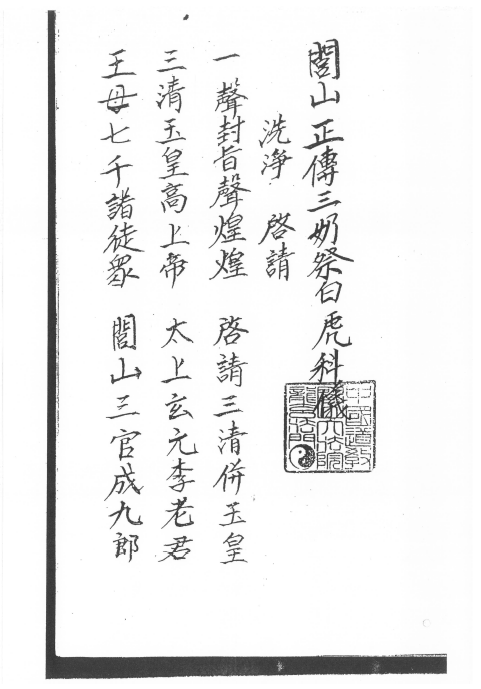 閭山正傳三奶祭白虎科儀
洗淨　啓請
一聲封旨聲煌煌　啓請三清併玉皇
三清玉皇高上帝　太上玄元李老君
王母七千諸徒眾　閭山三官成九郎
中國道教
法院
法門